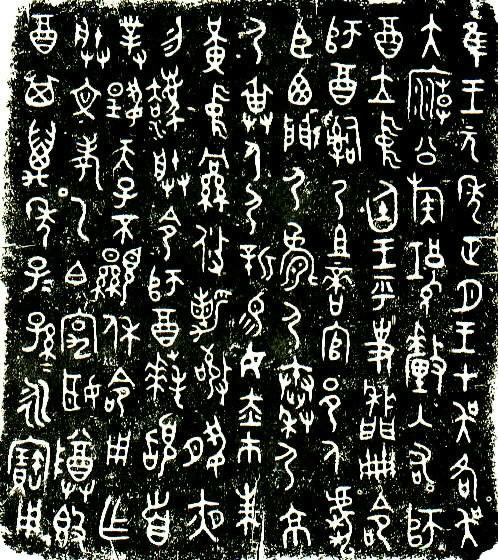 隹王元年正月王才吳各吳
大廟公族釐入右師
酉立中廷王乎史冊命
師酉嗣乃且啻官邑人虎
臣西門尸尸秦尸京
尸身尸新易女赤巿朱
黃中攸勒敬夙
夜勿灋朕令師酉拜稽首
對揚天子不顯休令用乍
朕文考乙白宮姬尊𣪘
酉其萬年子孫永寶用